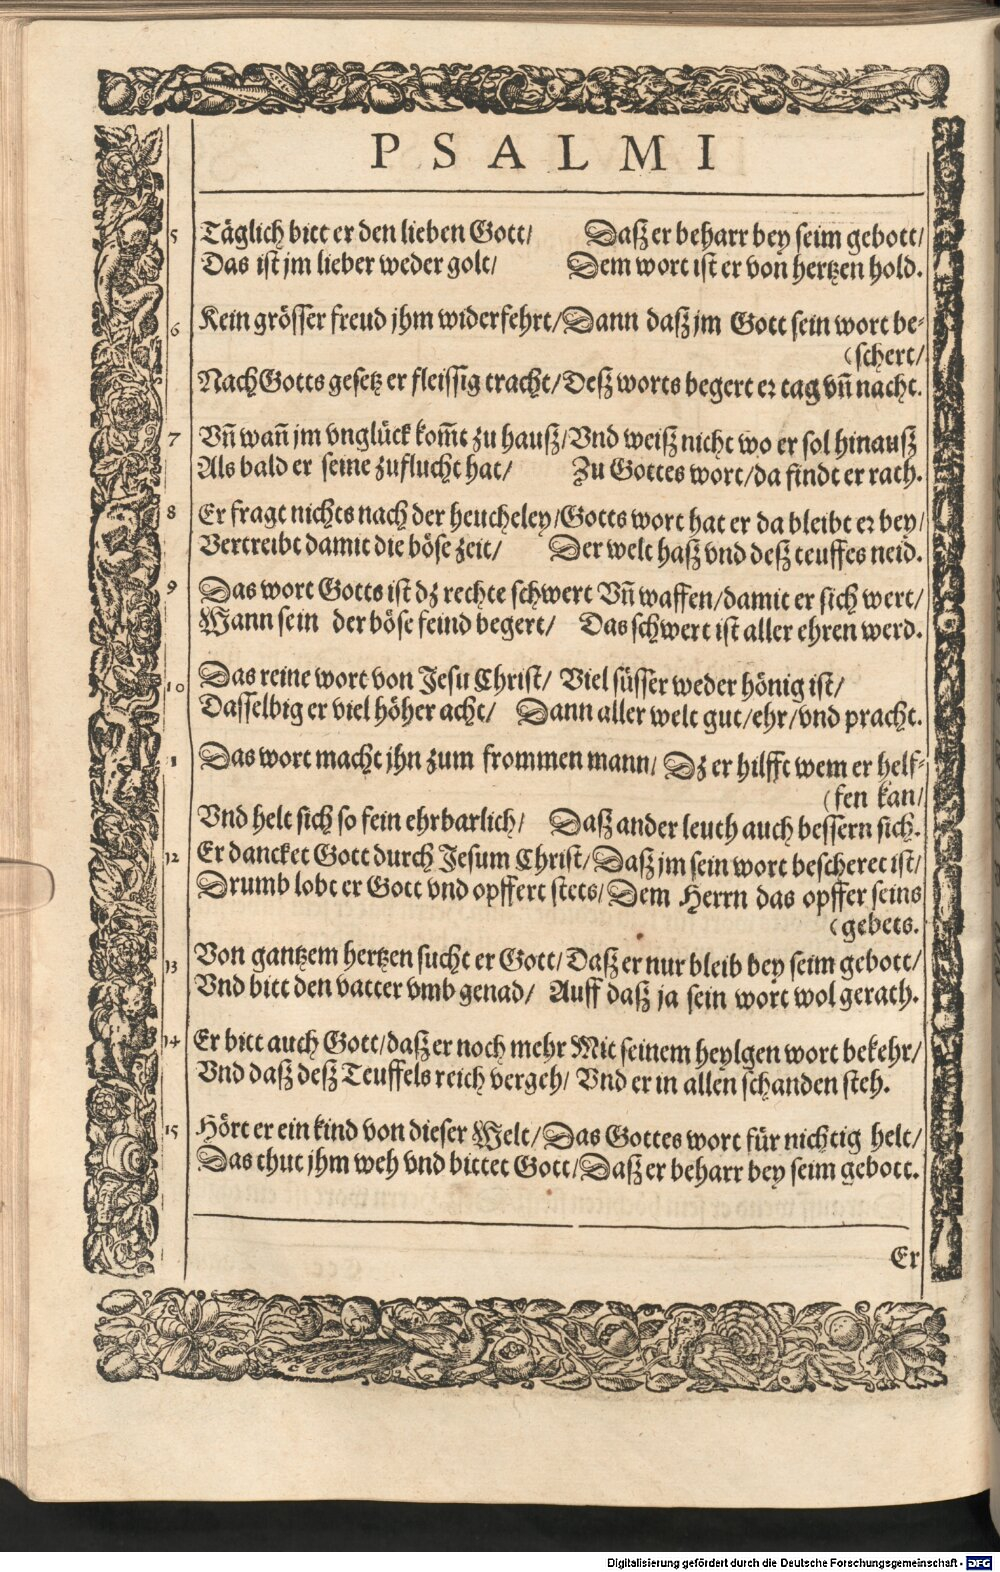 PSALMI
5 Täglich bitt er den lieben Gott/ Daß er beharr bey seim gebott/
Das ist jm lieber weder golt/ Dem wort ist er von hertzen hold.
6 Kein grösser freud jhm widerfehrt/ Dann daß jm Gott sein wort be-
(schert/
Nach Gotts gesetz er fleissig tracht/ Deß worts begert er tag vn̄ nacht.
7 Vn̄ wan̄ jm vnglück kom̄t zu hauß/ Vnd weiß nicht wo er sol hinauß
Als bald er seine zuflucht hat/ Zu Gottes wort/ da findt er rath.
8 Er fragt nichts nach der heucheley/ Gotts wort hat er da bleibt er bey/
Vertreibt damit die böse zeit/ Der welt haß vnd deß teuffes neid.
9 Das wort Gotts ist dz rechte schwert Vn̄ waffen/ damit er sich wert/
Wann sein der böse feind begert/ Das schwert ist aller ehren werd.
10 Das reine wort von Jesu Christ/ Viel süsser weder hönig ist/
Dasselbig er viel höher acht/ Dann aller welt gut/ ehr/ vnd pracht.
1 Das wort macht jhn zum frommen mann/ Dz er hilfft wem er helf-
(fen kan/
Vnd helt sich so fein ehrbarlich/ Daß ander leuth auch bessern sich.
12 Er dancket Gott durch Jesum Christ/ Daß jm sein wort bescheret ist/
Drumb lobt er Gott vnd opffert stets/ Dem Herrn das opffer seins
(gebets.
13 Von gantzem hertzen sucht er Gott/ Daß er nur bleib bey seim gebott/
Vnd bitt den vatter vmb genad/ Auff daß ja sein wort wol gerath.
14 Er bitt auch Gott/ daß er noch mehr Mit seinem heylgen wort bekehr/
Vnd daß deß Teuffels reich vergeh/ Vnd er in allen schanden steh.
15 Hört er ein kind von dieser Welt/ Das Gottes wort für nichtig helt/
Das thut jhm weh vnd bittet Gott/ Daß er beharr bey seim gebott.
Er
Digitalisierung gefördert durch die Deutsche Forschungsgemeinschaft - DFG